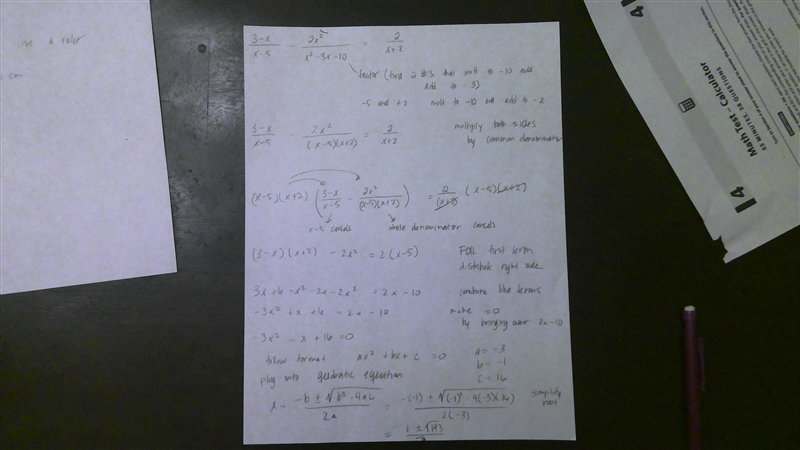 use a ruler
cm
3-x/x-5 - 2x²/x²-3x-10 = 2/x+2
factor (find 2 #s that mult to -10 and
add to -3)
-5 and +2 mult to -10 and add to -2
3-x/x-5 - 2x²/(x-5)(x+2) = 2/x+2 multiply both sides
by common denominator
(x-5)(x+2) (3-x/x-5 - 2x²/(x-5)(x+2)) = 2/(x+2) (x-5)(x+2)
x-5 cancels whole denominator cancels
(3-x)(x+2) - 2x² = 2(x-5) FOIL first term
distribute right side
3x+6 -x² -2x -2x² = 2x-10 combine like terms
-3x² + x + 6 = 2x - 10 make =0
by bringing over 2x-10
-3x² - x + 16 = 0
follow format ax² + bx + c = 0 a = -3
b = -1
c = 16
plug into quadratic equation
x = -b ± √b² - 4ac / 2a = -(-1) ± √(-1)² - 4(-3)(16) / 2(-3) simplify
root
= 1 ± √193 / -6
Math Test - Calculator
55 MINUTES, 38 QUESTIONS
4
4